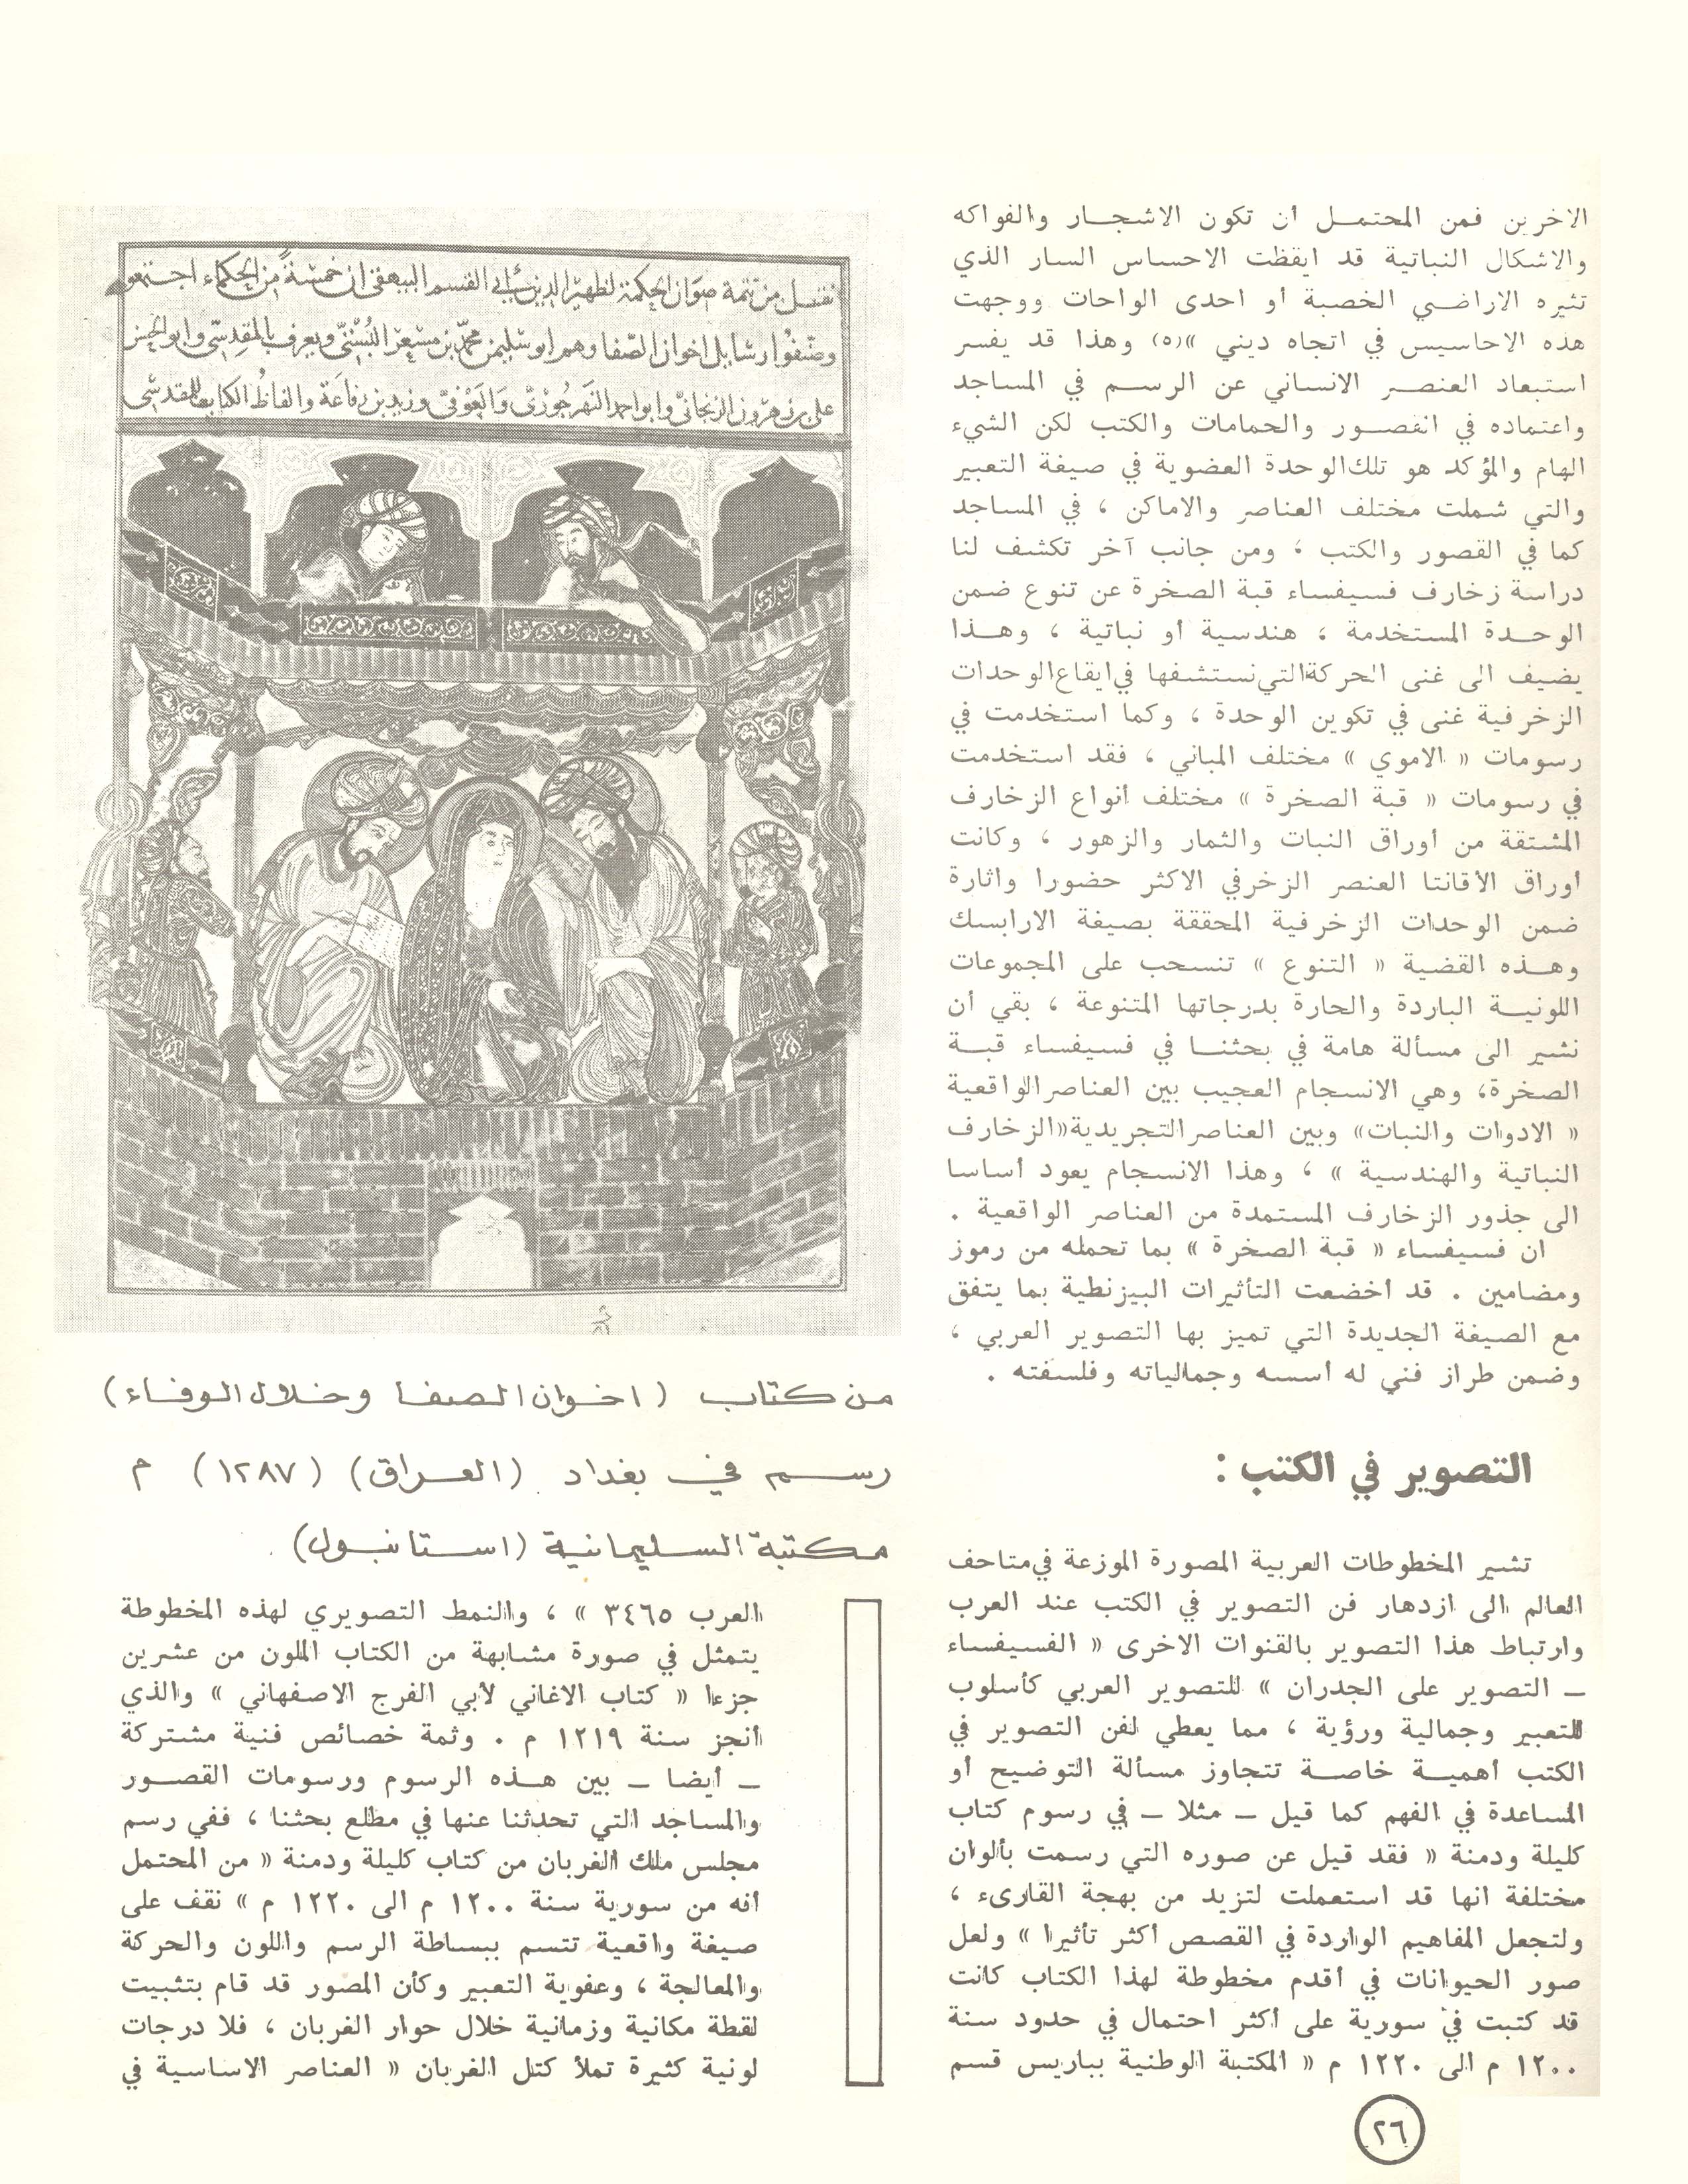 الاخرين فمن المحتمـــل أن تكون الاشجـــار والفواكه
والاشكال النباتية قد ايقظت الاحساس السار الذي
تثيره الاراضــي الخصبة أو احدى الواحات ووجهت
هذه الاحاسيس في اتجاه ديني »(٥) وهذا قد يفسر
استبعاد العنصــر الانساني عن الرســم في المساجد
واعتماده في القصــور والحمامات والكتب لكن الشيء
الهام والمؤكد هو تلك الوحدة العضوية في صيغة التعبير
والتي شملت مختلف العناصر والاماكن ، في المساجد
كما في القصور والكتب ، ومن جانب آخر تكشف لنا
دراسة زخارف فسيفساء قبة الصخرة عن تنوع ضمن
الوحــدة المستخدمة ، هندسية أو نباتية ، وهــذا
يضيف الى غنى الحركة التي نستشفها في ايقاع الوحدات
الزخرفية غنى في تكوين الوحدة ، وكما استخدمت في
رسومات « الاموي » مختلف المباني ، فقد استخدمت
في رسومات « قبة الصخرة » مختلف أنواع الزخارف
المشتقة من أوراق النبات والثمار والزهور ، وكانت
أوراق الأقانتا العنصر الزخرفي الاكثر حضورا واثارة
ضمن الوحدات الزخرفية المحققة بصيغة الارابسك
وهــذه القضية « التنوع » تنسحب على المجموعات
اللونيــة الباردة والحارة بدرجاتها المتنوعة ، بقي أن
نشير الى مسألة هامة في بحثنــا في فسيفساء قبــة
الصخرة، وهي الانسجام العجيب بين العناصر الواقعية
« الادوات والنبات» وبين العناصر التجريدية«الزخارف
النباتية والهندسية » ، وهذا الانسجام يعود أساسا
الى جذور الزخارف المستمدة من العناصر الواقعية .
ان فسيفساء « قبة الصخرة » بما تحمله من رموز
ومضامين . قد أخضعت التأثيرات البيزنطية بما يتفق
مع الصيغة الجديدة التي تميز بها التصوير العربي ،
وضمن طراز فني له أسسه وجمالياته وفلسفته .
التصوير في الكتب :
تشير المخطوطات العربية المصورة الموزعة في متاحف
العالم الى ازدهار فن التصوير في الكتب عند العرب
وارتباط هذا التصوير بالقنوات الاخرى « الفسيفساء
ــ التصوير على الجدران » للتصوير العربي كأسلوب
للتعبير وجمالية ورؤية ، مما يعطي لفن التصوير في
الكتب أهميــة خاصــة تتجاوز مسألة التوضيح أو
المساعدة في الفهم كما قيل ــ مثلا ــ في رسوم كتاب
كليلة ودمنة « فقد قيل عن صوره التي رسمت بألوان
مختلفة انها قد استعملت لتزيد من بهجة القارىء ،
ولتجعل المفاهيم الواردة في القصص أكثر تأثيرا » ولعل
صور الحيوانات في أقدم مخطوطة لهذا الكتاب كانت
قد كتبت في سورية على أكثر احتمال في حدود سنة
١٢٠٠ م الى ١٢٢٠ م « المكتبة الوطنية بباريس قسم
نقـــل من تتمة صوان الحكمة لظهير الدين أبي القسم البيهقي ان خمسة من الحكماء اجتمعو
وصنفوا رسايل اخوان الصفا وهم ابو سليمن محمد بن مسعر البستي ويعرف بالمقدسي وابو الحسن
علي بن هرون الزنجاني وابو احمد النهرجوري والعوفي وزيد بن رفاعة والفاظ الكتاب للمقدسي
من كتاب (اخوان الصفا وخلال الوفاء)
رســم في بغداد (العــراق) (١٢٨٧) م
مكتبة السليمانية (استانبول) .
العرب ٣٤٦٥ » ، والنمط التصويري لهذه المخطوطة
يتمثل في صورة مشابهة من الكتاب الملون من عشرين
جزءا « كتاب الاغاني لأبي الفرج الاصفهاني » والذي
أنجز سنة ١٢١٩ م . وثمة خصائص فنية مشتركة
ــ أيضا ــ بين هــذه الرسوم ورسومات القصــور
والمساجد التي تحدثنا عنها في مطلع بحثنا ، ففي رسم
مجلس ملك الغربان من كتاب كليلة ودمنة « من المحتمل
أنه من سورية سنة ١٢٠٠ م الى ١٢٢٠ م » نقف على
صيغة واقعية تتسم ببساطة الرسم واللون والحركة
والمعالجة ، وعفوية التعبير وكأن المصور قد قام بتثبيت
لقطة مكانية وزمانية خلال حوار الغربان ، فلا درجات
لونية كثيرة تملأ كتل الغربان « العناصر الاساسية في
٢٦